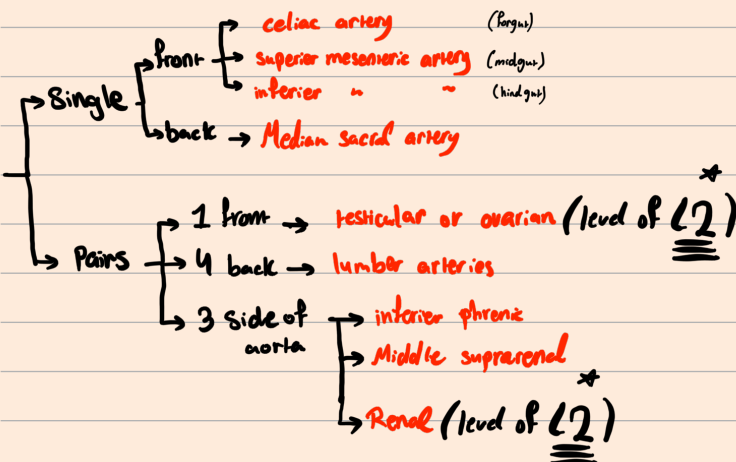 celiac artery (forgut)
front
superior mesenteric artery (midgut)
Single
inferior " " (hindgut)
back → Median sacral artery
1 front → testicular or ovarian (level of L2)
Pairs
4 back → lumbar arteries
3 side of aorta
inferior phrenic
Middle suprarenal
Renal (level of L2)